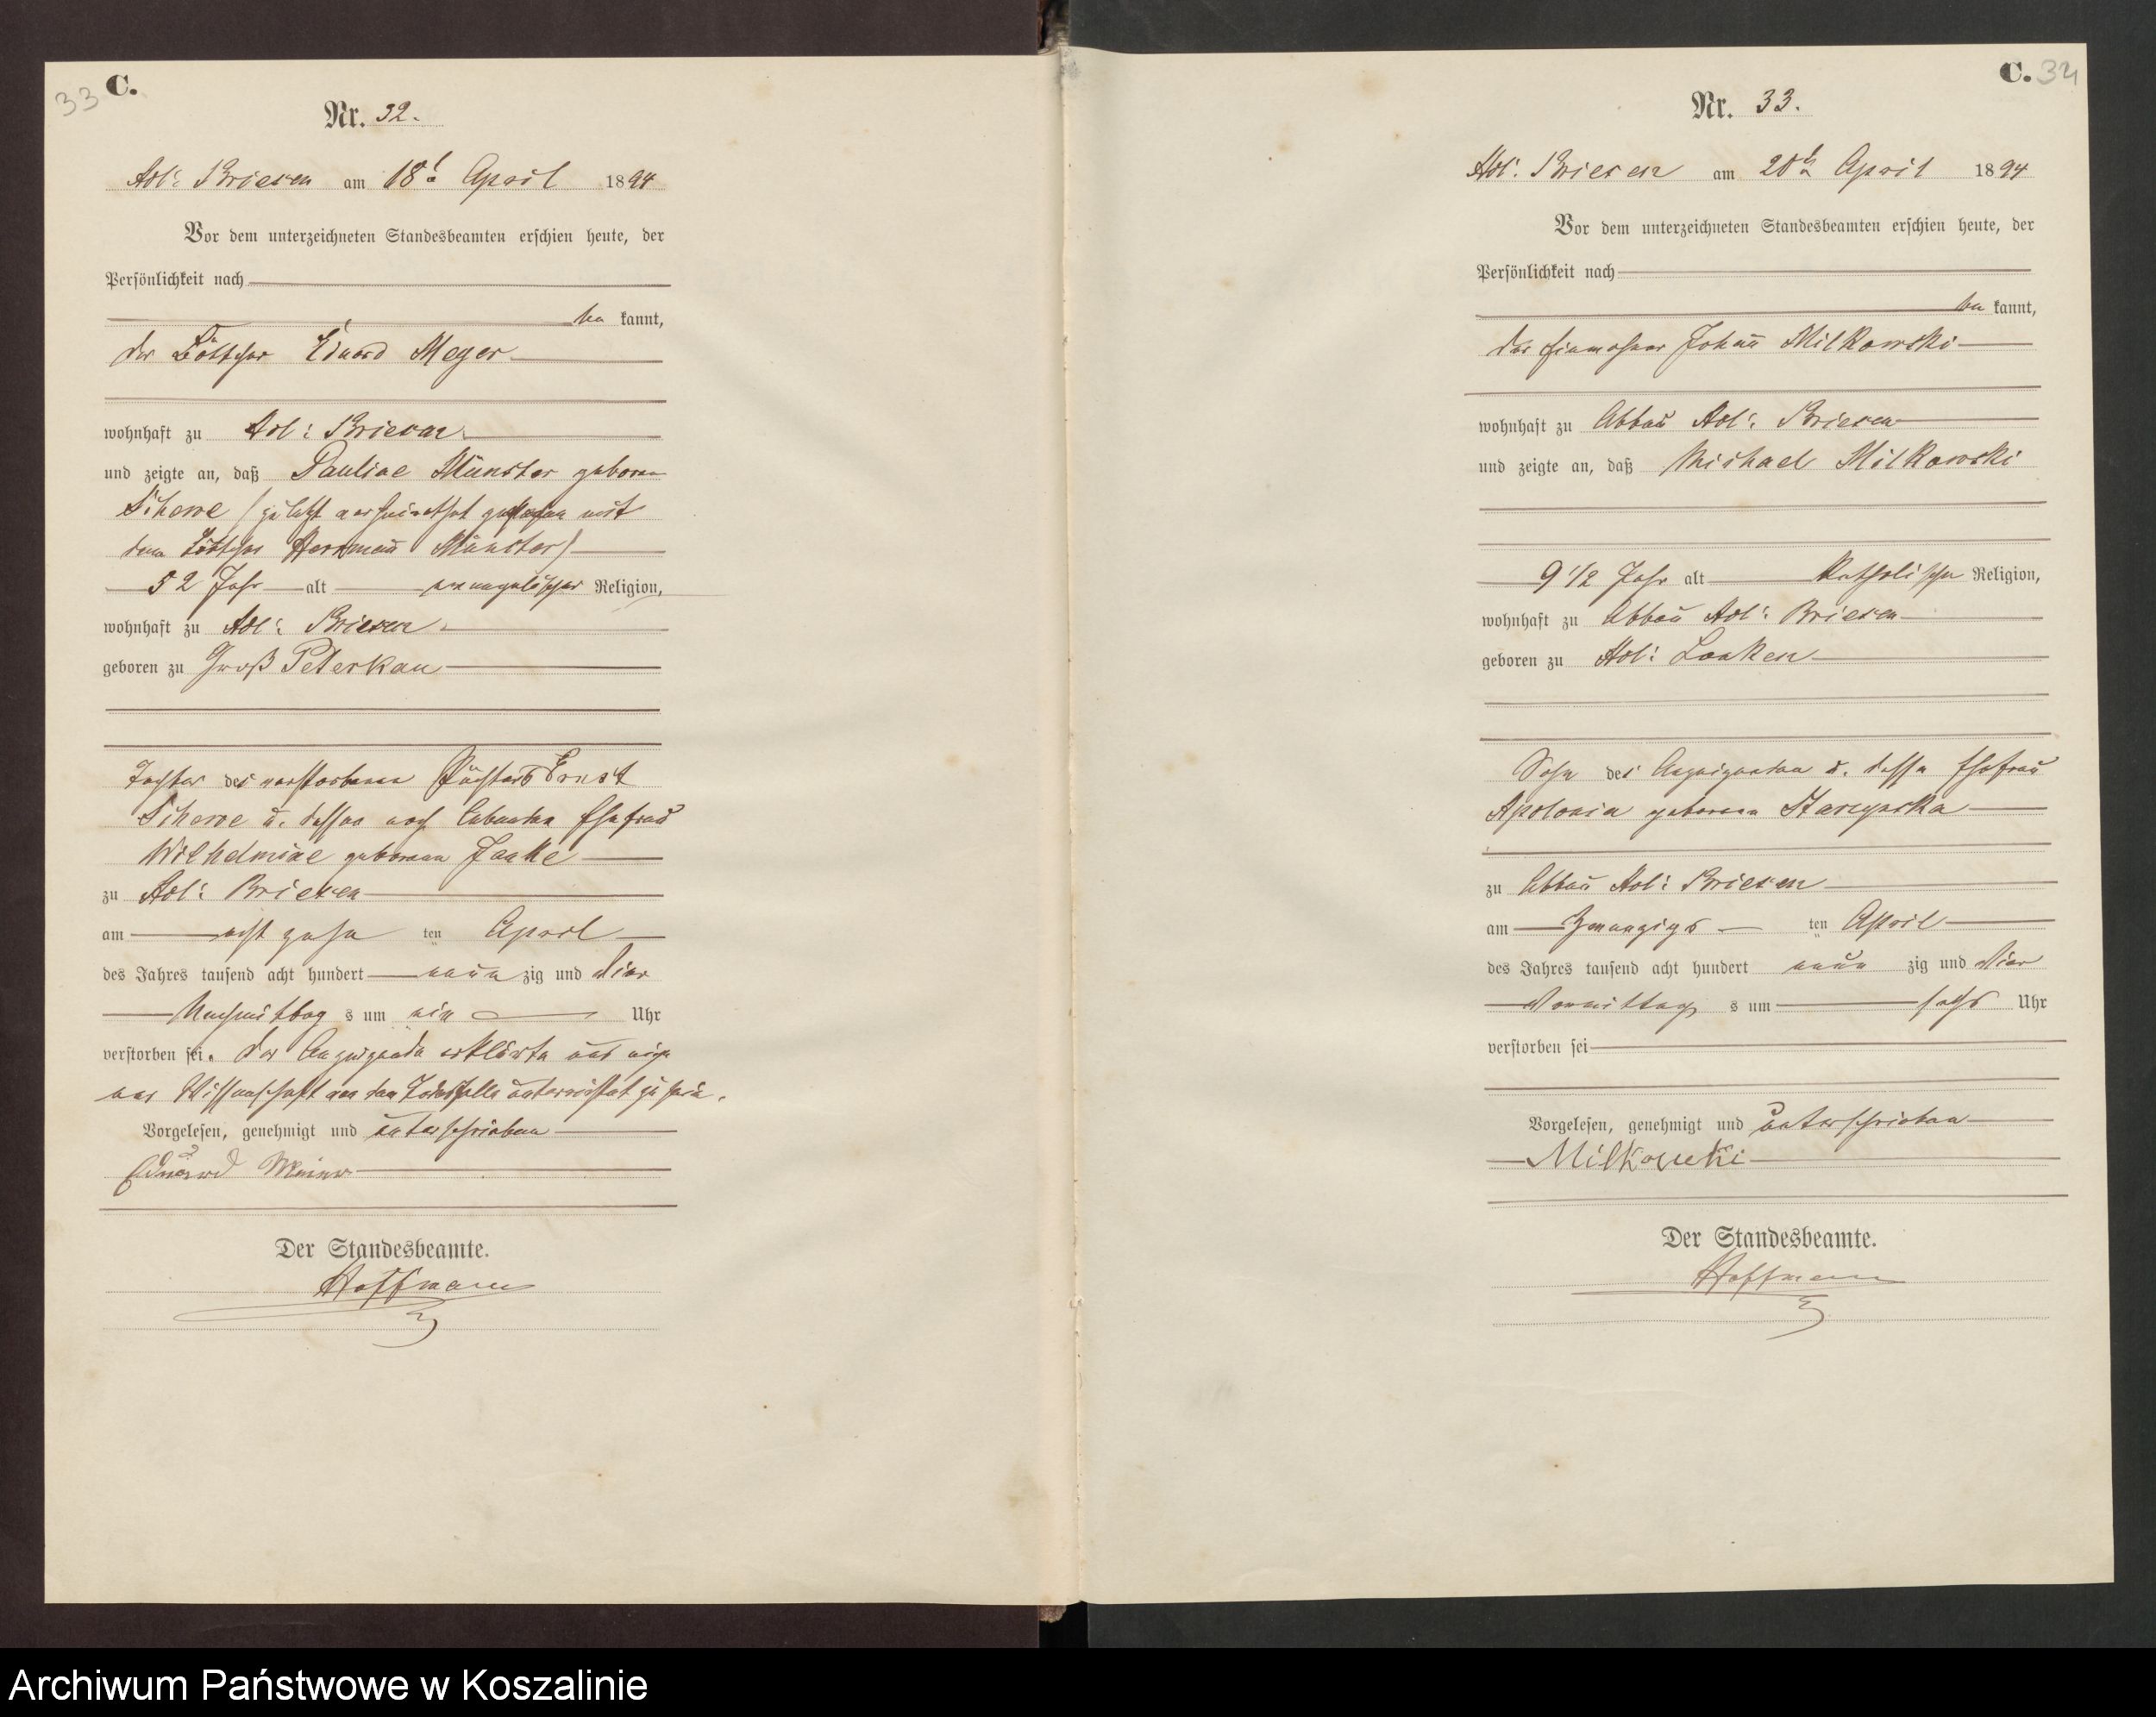 33 C.
Nr. 32.
Adl: Briesen am 18t April 1894
Vor dem unterzeichneten Standesbeamten erschien heute, der
Persönlichkeit nach
be kannt,
der Böttcher Eduard Meyer
wohnhaft zu Adl: Briesen
und zeigte an, daß Pauline Münster geborene
Schewe (zuletzt verheirathet gewesen mit
dem Böttcher Herrmann Münster)
52 Jahr alt evangelischer Religion,
wohnhaft zu Adl: Briesen
geboren zu Groß Peterkau
Tochter des verstorbenen Pächters Ernst
Schewe u. dessen noch lebenden Ehefrau
Wilhelmine geborene Janke
zu Adl: Briesen
am acht zehn ten April
des Jahres tausend acht hundert neun zig und vier
Nachmittag s um ein Uhr
verstorben sei. Der Anzeigende erklärte aus eige
ner Wissenschaft von dem Todesfalle unterrichtet zu sein.
Vorgelesen, genehmigt und unterschrieben
Eduard
Der Standesbeamte.
Hoffmann
C. 34
Nr. 33.
Adl: Briesen am 20t April 1894
Vor dem unterzeichneten Standesbeamten erschien heute, der
Persönlichkeit nach
be kannt,
der Einwohner Johann Milkowski
wohnhaft zu Abbau Adl: Briesen
und zeigte an, daß Michael Milkowski
9 1/2 Jahr alt katholischer Religion,
wohnhaft zu Abbau Adl: Briesen
geboren zu Adl: Lonken
Sohn des Anzeigenden u. dessen Ehefrau
Apolonia geborene
zu Abbau Adl: Briesen
am Zwanzigs ten April
des Jahres tausend acht hundert neun zig und vier
Vormittag s um sechs Uhr
verstorben sei
Vorgelesen, genehmigt und unterschrieben
Milkowski
Der Standesbeamte.
Hoffmann
Archiwum Państwowe w Koszalinie